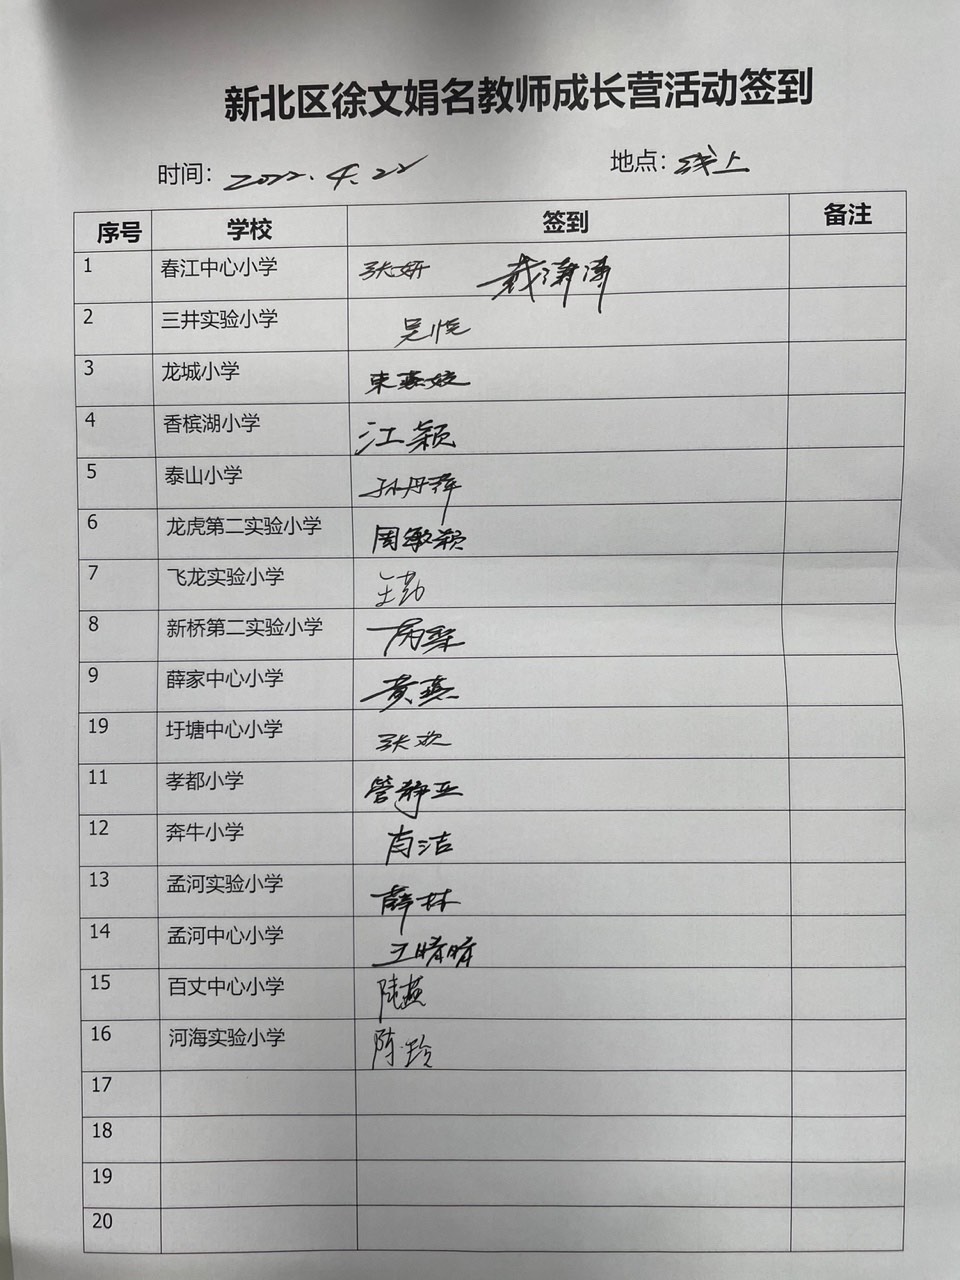 新北区徐文娟名教师成长营活动签到
时间：2022.4.22 地点：线上
序号 学校 签到 备注
1 春江中心小学 张妍 戴潇潇
2 三井实验小学 吴悦
3 龙城小学 束燕姣
4 香槟湖小学 江颖
5 泰山小学 孙丹萍
6 龙虎第二实验小学 周敏颖
7 飞龙实验小学 王勤
8 新桥第二实验小学
9 薛家中心小学 黄燕
19 圩塘中心小学 张欢
11 孝都小学 管静亚
12 奔牛小学 肖洁
13 孟河实验小学 薛林
14 孟河中心小学 王晴晴
15 百丈中心小学 陆燕
16 河海实验小学 陈玲
17
18
19
20